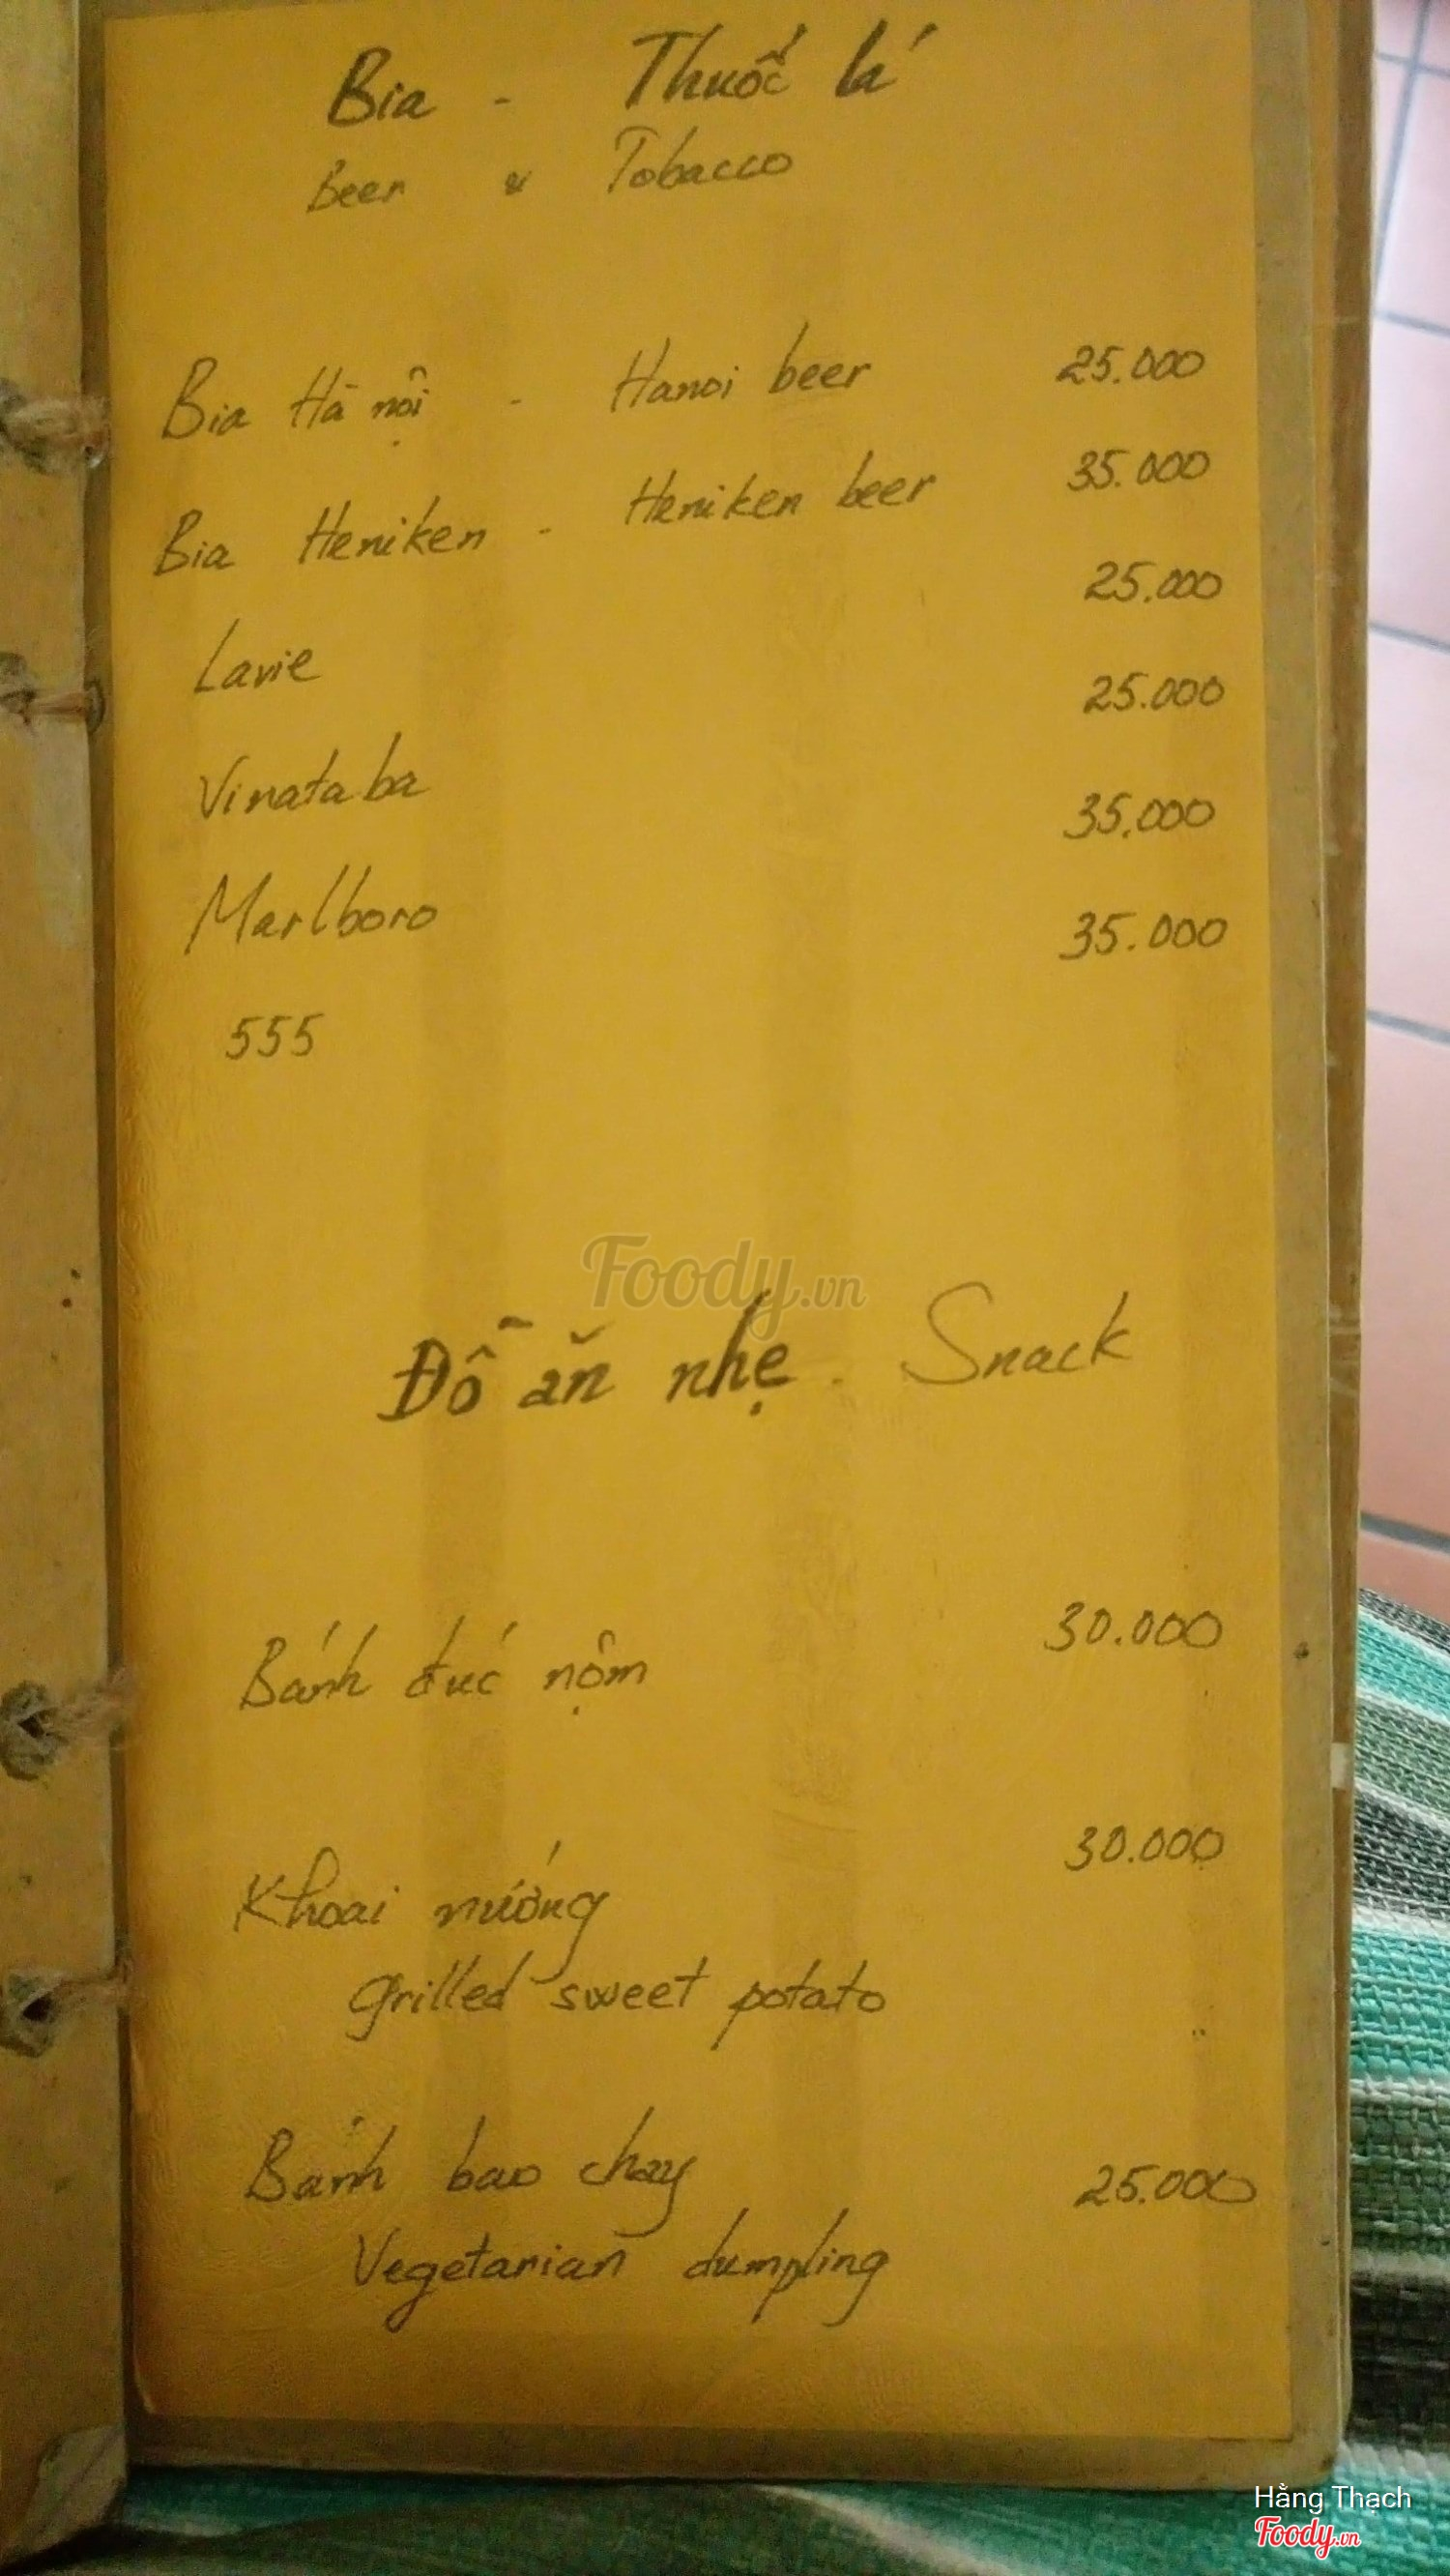 Bia - Thuốc lá
Beer & Tobacco
Bia Hà nội - Hanoi beer 25.000
Bia Heniken - Heniken beer 35.000
Lavie 25.000
Vinataba 25.000
Marlboro 35.000
555 35.000
Foody.vn
Đồ ăn nhẹ - Snack
Bánh đúc nộm 30.000
Khoai nướng 30.000
Grilled sweet potato
Bánh bao chay 25.000
Vegetarian dumpling
Hằng Thạch
Foody.vn